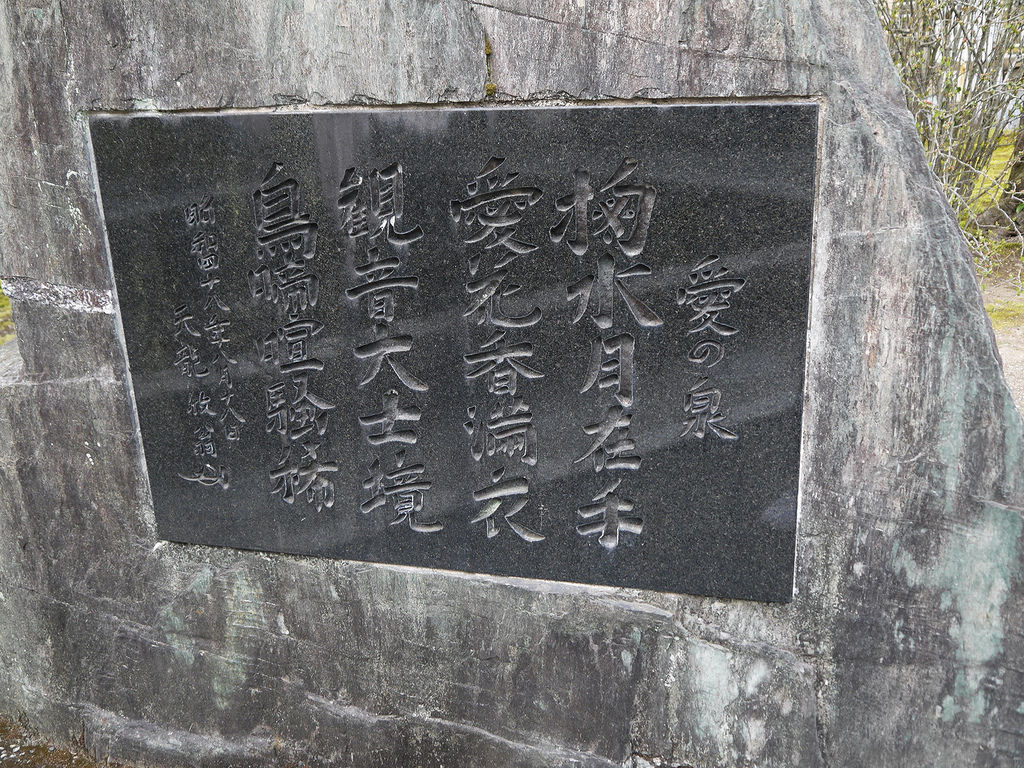 愛の泉
掬水月在手
愛花香満衣
観音大士境
鳥啼喧騒稀
昭和四十八年八月十八日
天龍牧翁